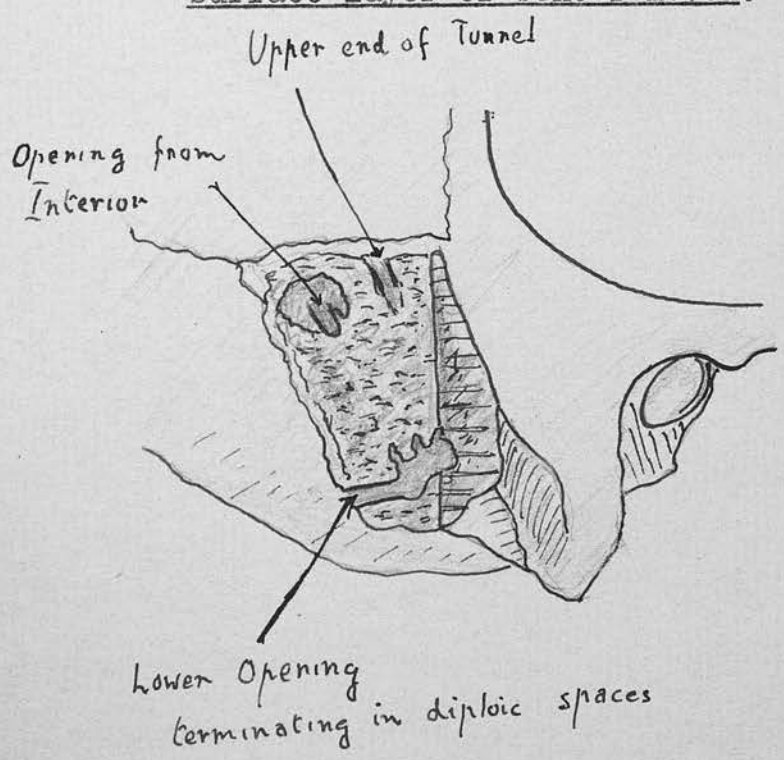 Surface Layer of Bone
Upper end of Tunnel
Opening from
Interior
Lower Opening
terminating in diploic spaces